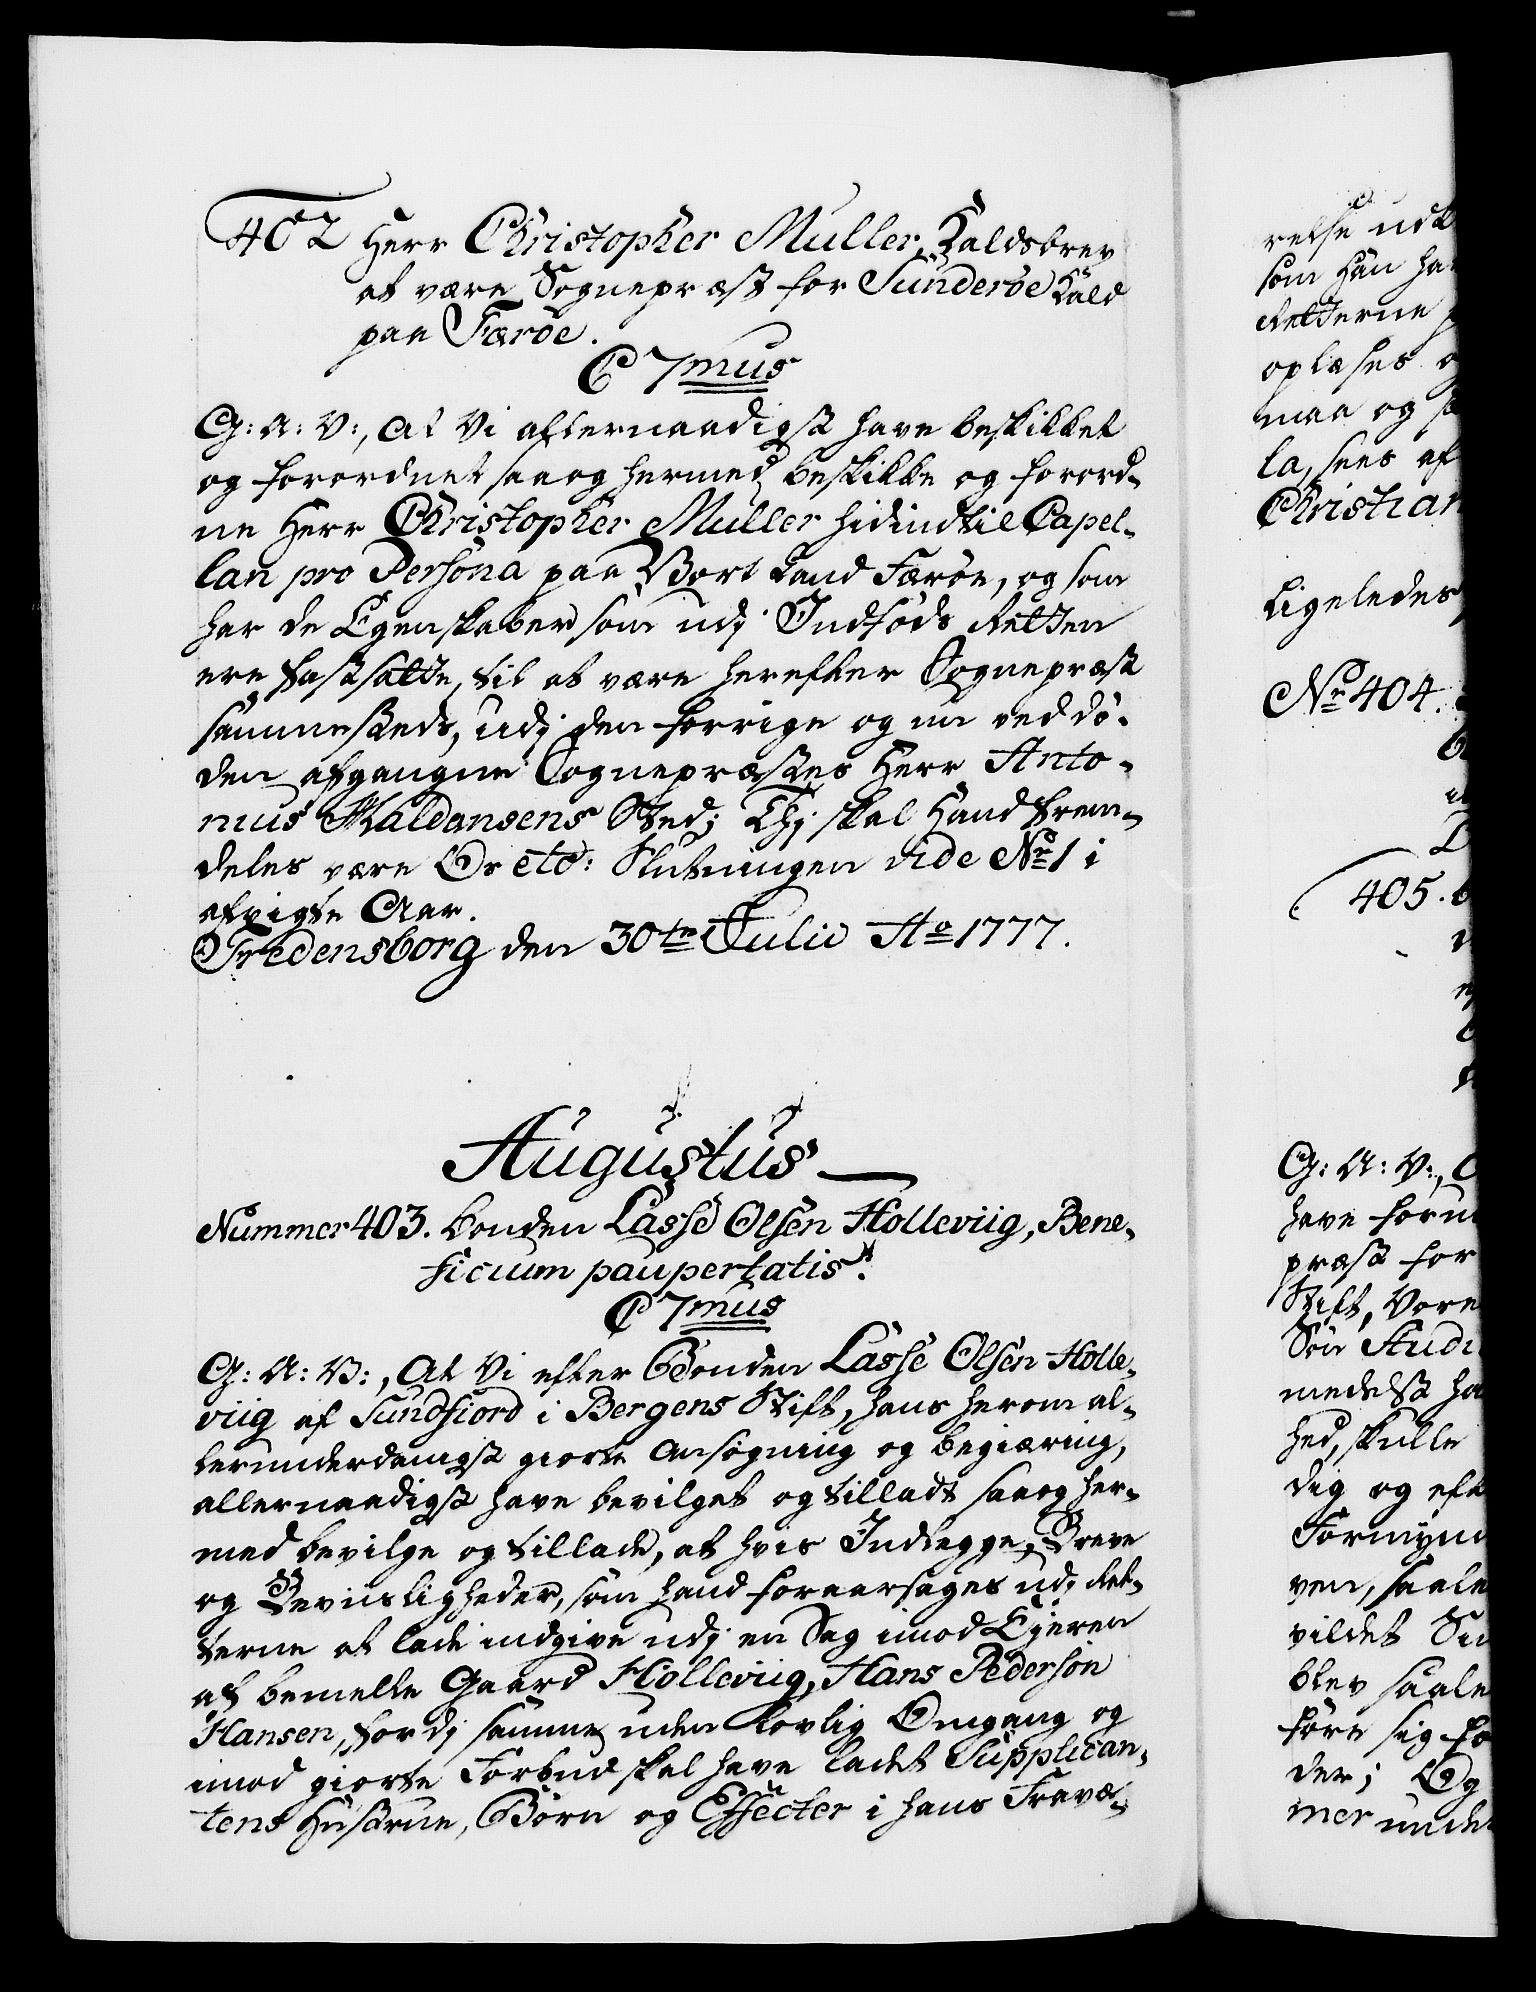 402 Herr Christopher Muller, Kaldsbrev
at være Sognepræst for Sünderöe Kald
paa Færöe.
C 7mus
G: A: V:, At Vi allernaadigst have beskikket
og forordnet saa og hermed beskikke og forord-
ne Herr Christopher Muller hidindtil Capel-
lan pro Persona paa Vort Land Færöe, og som
har de Egenskaber som udj Indföds Retten
ere fastsatte, til at være herefter Sognepræst
sammesteds, udj den forrige og nu ved dö-
den afgangne Sognepræstes Herr Anto-
nius Haldansens Sted; Thj skal Hand frem-
deles være Os etc: Slutningen vide No 1 i
afvigte Aar.
Fredensborg den 30te Julii Ao 1777.
Augustus
Nummer 403. Bonden Lasse Olsen Holleviig, Bene-
ficium paupertatis.
C 7mus
G: A: V:, At Vi efter Bonden Lasse Olsen Holle-
viig af Sundfiord i Bergens Stift, hans herom al-
lerunderdanigst giorte Ansögning og begiæring,
allernaadigst have bevilget og tilladt saa og her-
med bevilge og tillade, at hvis Indlegge, Breve
og Beviisligheder, som hand foraarsages udj Ret-
terne at lade indgive udj en Sag imod Ejeren
af bemelte Gaard Holleviig, Hans Pedersön
Hansen, fordj samme uden Lovlig Omgang og
imod giorte Forbud skal have ladet Supplican-
tens Hustrue, Börn og Effecter i hans Fravæ-
relse udk
som han ha
Retterne
oplæses o
maa og
la, sees af
Christian
Ligeledes
No 404.
405.
G: A: V:,
have forun
præst for
Stift, Vore
Sön Andr
medelst ha
hed, skulle
dig og eft
Formÿnd
ven, saale
vildet
blev saale
före sig fo
der; Og
mer unde